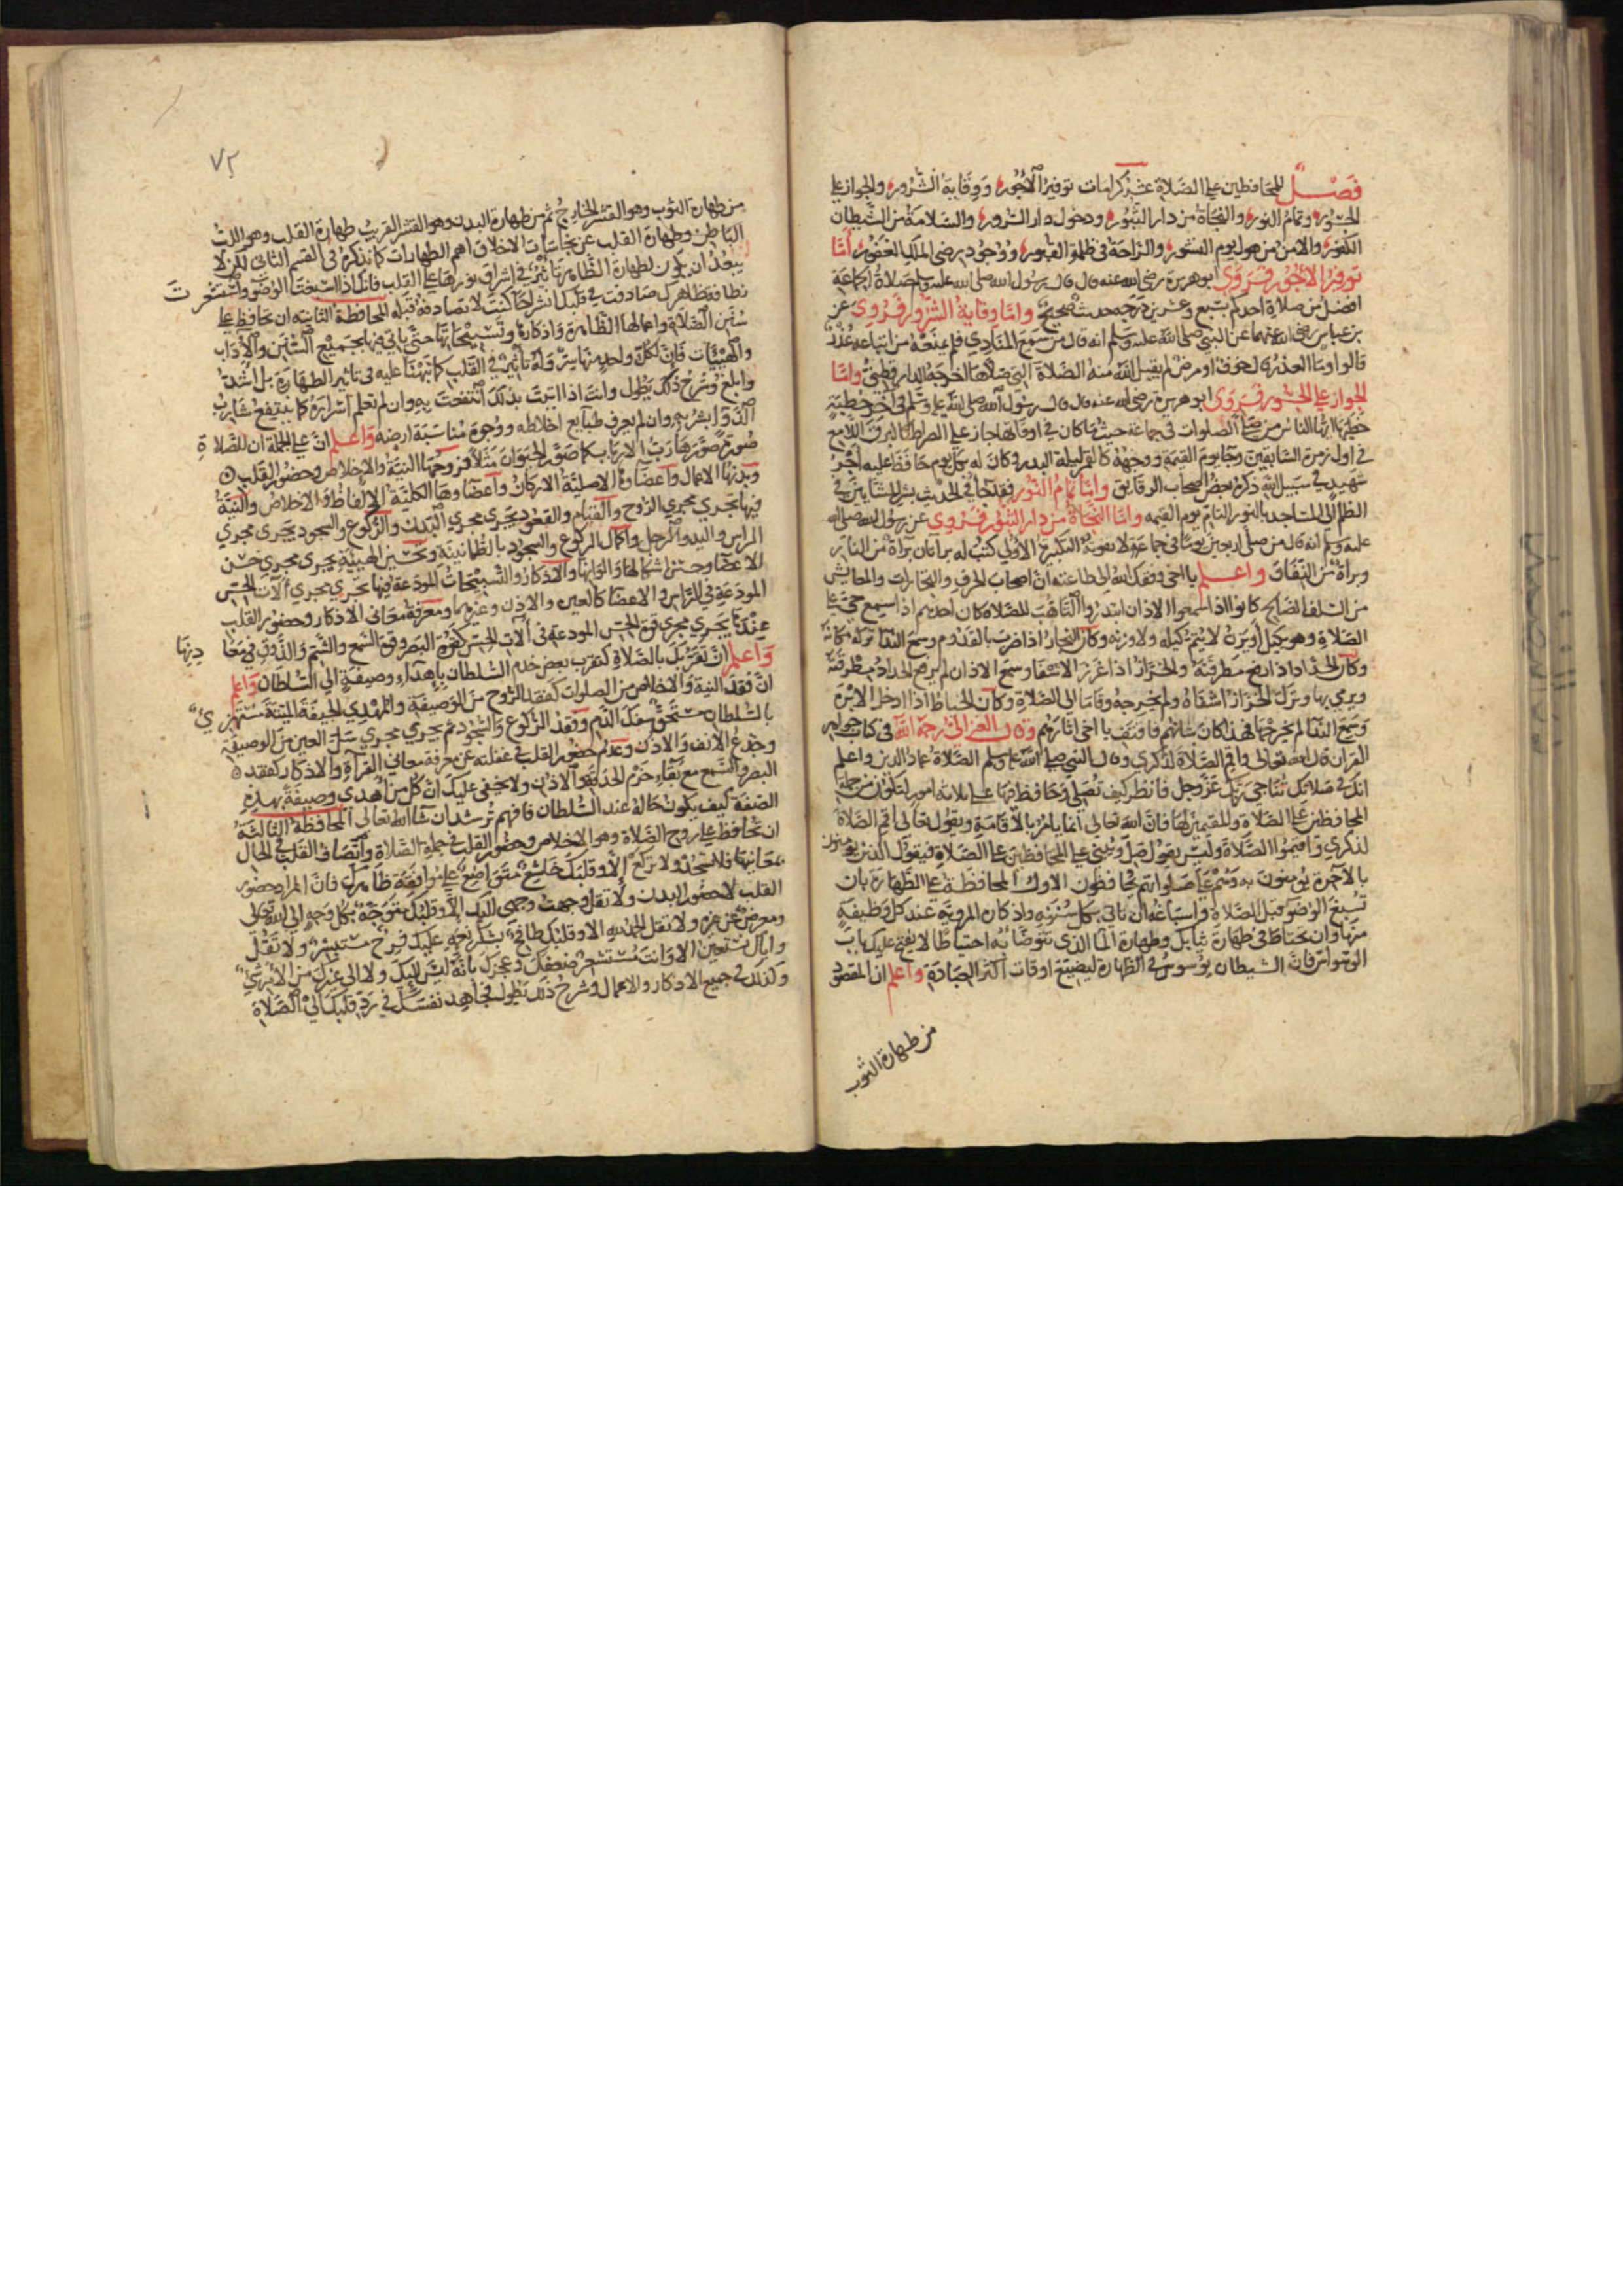 فصل للمحافظين على الصلاة عشر كرامات توفير الاجور ووقاية الشرور والجواز على
الجسور وتمام النور والنجاة من دار الثبور ودخول دار السرور والسلامة من الشيطان
الكفور والامن من هول يوم النشور والراحة في ظلمة القبور ووجود رضى الملك الغفور أما
توفير الاجور فروى ابو هريرة رضي الله عنه قال قال رسول الله صلى الله عليه وسلم صلاة الجماعة
افضل من صلاة احدكم بسبع وعشرين درجة حديث صحيح واما وقاية الشرور فروى عن
بن عباس رضي الله عنهما عن النبي صلى الله عليه وسلم انه قال من سمع المنادي فلم يمنعه من اتباعه عذر
قالوا وما العذر قال خوف او مرض لم يقبل الله منه الصلاة التي صلاها اخرجه الدارقطني واما
الجواز على الجسور فروى ابو هريرة رضي الله عنه قال قال رسول الله صلى الله عليه وسلم في آخر خطبة
خطبها ايها الناس من صلى الصلوات في جماعة حيث ما كان في اوقاتها جاز على الصراط كالبرق اللامع
في اول زمرة السابقين وجا يوم القيمة ووجهه كالقمر ليلة البدر وكان له بكل يوم حافظ عليه اجر
شهيد في سبيل الله ذكره بعض اصحاب الرقايق واما تمام النور فقد جا في الحديث بشر المشايين في
الظلم الى المساجد بالنور التام يوم القيمه واما النجاة من دار الثبور فروى عن رسول الله صلى الله
عليه وسلم انه قال من صلى اربعين يوما في جماعة لا تفوته التكبيرة الاولى كتب له براتان براة من النار
وبراة من النفاق واعلم يا اخي وفقك الله الى طاعته ان اصحاب الحرف والتجارات والمعايش
من السلف الصالح كانوا اذا سمعوا الاذان ابتدروا التاهب للصلاة كان احدهم اذا سمع حي على
الصلاة وهو يكيل أو يزن لا يتم كيله ولا وزنه وكان النجار اذا ضرب بالقدوم وسمع الندا تركه مكانه
وكان الحداد اذا رفع مطرقته والخراز اذا غرز الاشفا وسمع الاذان لم يرفع الحداد مطرقته
ويرمي بها وترك الخراز اشفاه ولم يخرجه وقاما الى الصلاة وكان الخياط اذا ادخل الابرة
وسمع الندا لم يخرجها فهذا كان شانهم فاقتف يا اخي اثارهم وقال الغزالي رحمه الله في كتاب جواهر
القران قال الله تعالى واقم الصلاة لذكري وقال النبي صلى الله عليه وسلم الصلاة عماد الدين واعلم
انك في صلاتك تناجي ربك عز وجل فانظر كيف تصلي وحافظ فيها على ثلاثة امور لتكون من جملة
المحافظين على الصلاة والمقيمين لها فان الله تعالى انما يامر بالاقامة ويقول تعالى اقم الصلاة
لذكري واقيموا الصلاة وليس يقول صل ويثني على المحافظين على الصلاة فيقول الذين يؤمنون
بالآخرة يؤمنون به وهم على صلواتهم يحافظون الاول المحافظة على الطهارة بان
تسبغ الوضو قبل الصلاة واسباغه ان تاتي بكل سننه واذكاره المروية عند كل وظيفة
منها وان تحتاط في طهارة ثيابك وطهارة الما الذي تتوضا به احتياطا لا يفتح عليك باب
الوسواس فان الشيطان يوسوس في الطهارة ليضيع اوقات اكثر العبادة واعلم ان المقصود
من طهارة الثوب
٧٢
من طهارة الثوب وهو القشر الخارج ثم من طهارة البدن وهو القشر القريب طهارة القلب وهو اللب
الباطن وطهارة القلب عن نجاسات الاخلاق اهم الطهارات كما نذكره في القسم الثاني لكن لا
يبعد ان يكون لطهارة الظاهر تاثير في اشراق نورها على القلب فانك اذا اسبغت الوضو واستشعرت
نظافة ظاهرك صادفت في قلبك انشراحا كنت لا تصادفه قبله المحافظة الثانية ان تحافظ على
سنن الصلاة واعمالها الظاهرة واذكارها وتسبيحاتها حتى ياتي فيها بجميع السنن والآداب
والهيئات فان لكل واحد منها سر وله تاثير في القلب كما نبهنا عليه في تاثير الطهارة بل اشد
وابلغ وشرح ذلك يطول وانت اذا اتيت بذلك انتفعت به وان لم تعلم اسراره كما ينتفع شارب
الدوا بشربه وان لم يعرف طبايع اخلاطه ووجوه مناسبة لمرضه واعلم ان على الجملة ان للصلاة
صورة صورها رب الارباب كما صور الحيوان مثلا فروحها النية والاخلاص وحضور القلب
وبدنها الاعمال واعضاؤها الاصلية الاركان واعضاوها الكلية الالفاظ والاخلاص والنية
فيها تجري مجرى الروح والقيام والقعود يجري مجرى البدن والركوع والسجود يجري مجرى
الراس واليد والرجل واكمال الركوع والسجود بالطمانينة وتحسين الهيئة يجري مجرى حسن
الاعضا وحسن اشكالها والوانها والاذكار والتسبيحات المودعة فيها تجري مجرى آلات الحس
المودعة في الراس والاعضا كالعين والاذن وغيرهما ومعرفة معاني الاذكار وحضور القلب
عندها يجري مجرى قوة الحس المودعة في آلات الحس كقوة البصر وقوة السمع والشم والذوق في معادنها
واعلم ان تقربك بالصلاة كتقرب بعض خدم السلطان باهداء وصيفة الى السلطان واعلم
ان فقد النية والاخلاص من الصلوات كفقد الروح من الوصيفة والمهدي للجيفة الميتة مستهزئ
بالسلطان مستحق سفك الدم وفقد الركوع والسجود ثم يجري مجرى سمل العين من الوصيفة
وجدع الانف والاذن وعدم حضور القلب في غفلته عن معرفة معاني القرآة والاذكار كفقد
البصر والسمع مع بقاء جرم الحدقة والاذن ولا يخفى عليك ان كل من اهدى وصيفة بهذه
الصفة كيف يكون حاله عند السلطان فافهم ترشد ان شا الله تعالى المحافظة الثالثة
ان تحافظ على روح الصلاة وهو الاخلاص وحضور القلب في جملة الصلاة واتصاف القلب في الحال
بمعانيها فلا تسجد ولا تركع إلا وقلبك خاشع متواضع على موافقة ظاهرك فان المراد حضور
القلب لا حضور البدن ولا تقل وجهت وجهي لله الا وقلبك متوجه بكل وجه الى الله تعالى
ومعرض عن غيره ولا تقل الحمد لله الا وقلبك طافح بشكر نعمه عليك فرح مستبشر ولا تقل
واياك نستعين الا وانت مستشعر ضعفك وعجزك بانه ليس اليك ولا الى غيرك من الامر شي
وكذلك في جميع الاذكار والاعمال وشرح ذلك يطول فجاهد نفسك في رد قلبك الى الصلاة